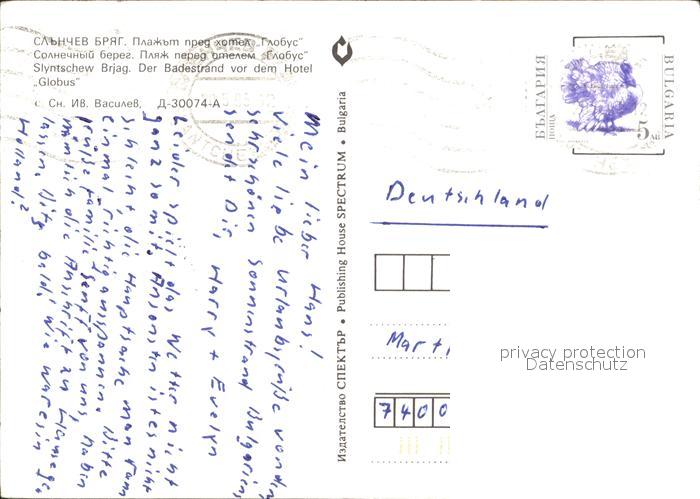 СЛЪНЧЕВ БРЯГ. Плажът пред хотел „Глобус"
Солнечный берег. Пляж перед отелем „Глобус"
Slyntschew Brjag. Der Badestrand vor dem Hotel
„Globus"
с Сн. Ив. Василев, Д-30074-А
Mein lieber Hans!
Viele liebe Urlaubsgrüße von den
sehr schönen Sonnenstrand Bulgariens
sendet Dir, Harry + Evelyn
Leider spielt das Wetter nicht
ganz so mit. Ansonsten ist es nicht
schlecht, die Hauptsache man kann
einmal richtig ausspannen. Bitte
grüße Familie Senff von uns, haben
nämlich die Anschrift zu Hause ge-
lassen. Bitte bald. Wie war es in
Holland?
Издателство СПЕКТЪР • Publishing House SPECTRUM • Bulgaria
БЪЛГАРИЯ
ПОЩА
5 лв
BULGARIA
Deutschland
Mart
7400
privacy protection
Datenschutz